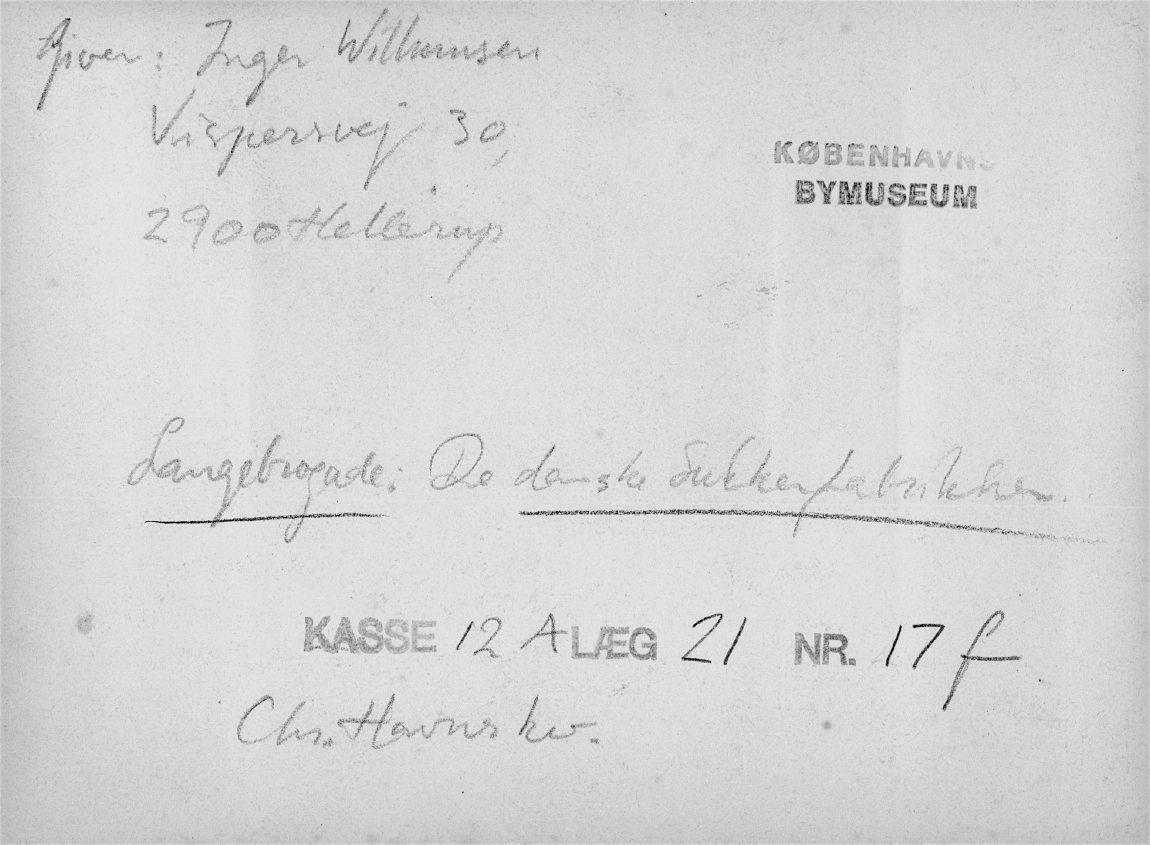 Giver: Inger Willumsen
30,
2900 Hellerup
KØBENHAVNS
BYMUSEUM
Langebrogade: De danske Sukkerfabrikker.
KASSE 12 A LÆG 21 NR. 17 f
Chr. Havns kv.